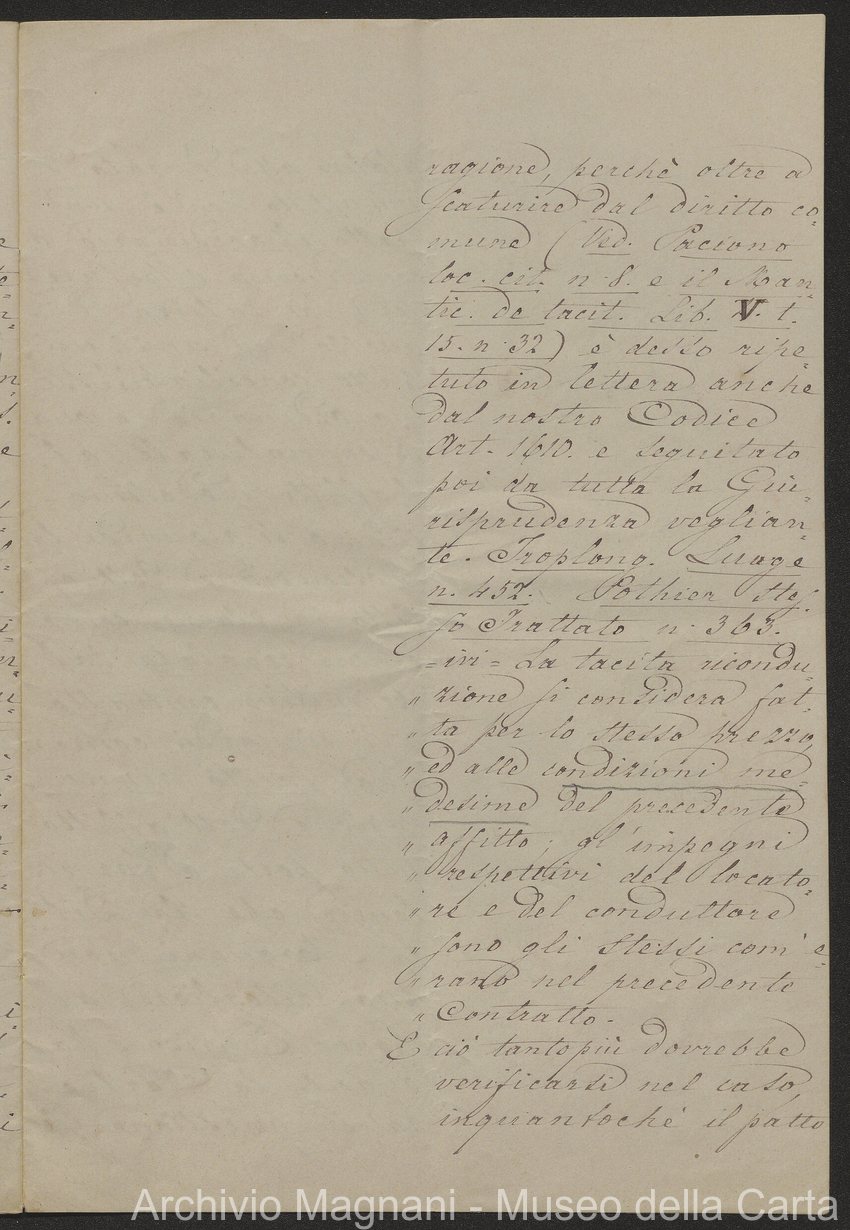 ragione, perchè oltre a
scaturire dal diritto co=
mune (Ved. Paciono
loc. cit. n. 8. e il Man=
tic. de tacit. Lib. V. t.
15. n. 32) è desso ripe=
tuto in lettera anche
dal nostro Codice
Art. 1610. e seguitato
poi da tutta la Giu=
risprudenza veglian=
te. Troplong. Luage
n. 452. Pothier stes=
so Trattato n. 363.
=ivi= La tacita ricondu=
" zione si considera fat=
" ta per lo stesso prezzo,
" ed alle condizioni me=
" desime del precedente
" affitto; gl'impegni
" respettivi del locato=
" re e del conduttore
" sono gli stessi com'e=
" rano nel precedente
" Contratto.
E ciò tanto più dovrebbe
verificarsi nel caso,
inquantochè il patto
Archivio Magnani - Museo della Carta